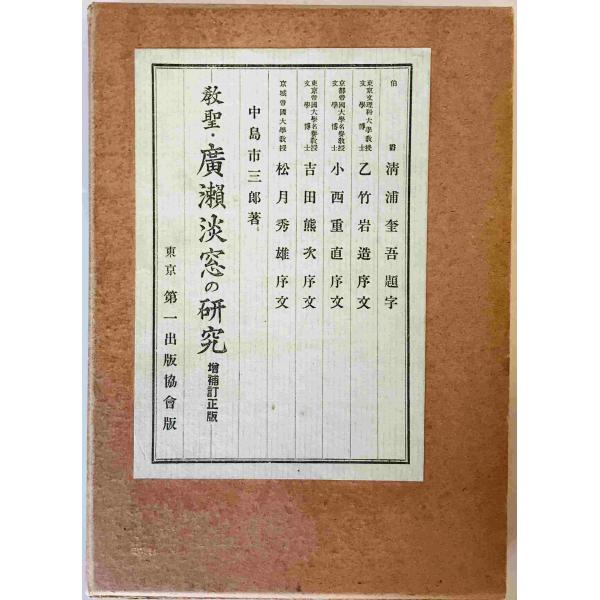 伯爵 清浦奎吾題字
東京文理科大學教授 文學博士 乙竹岩造序文
京都帝國大學名譽教授 文學博士 小西重直序文
東京帝國大學名譽教授 文學博士 吉田熊次序文
京城帝國大學教授 松月秀雄序文
中島市三郎著
教聖・廣瀨淡窓の研究 增補訂正版
東京 第一出版協會版